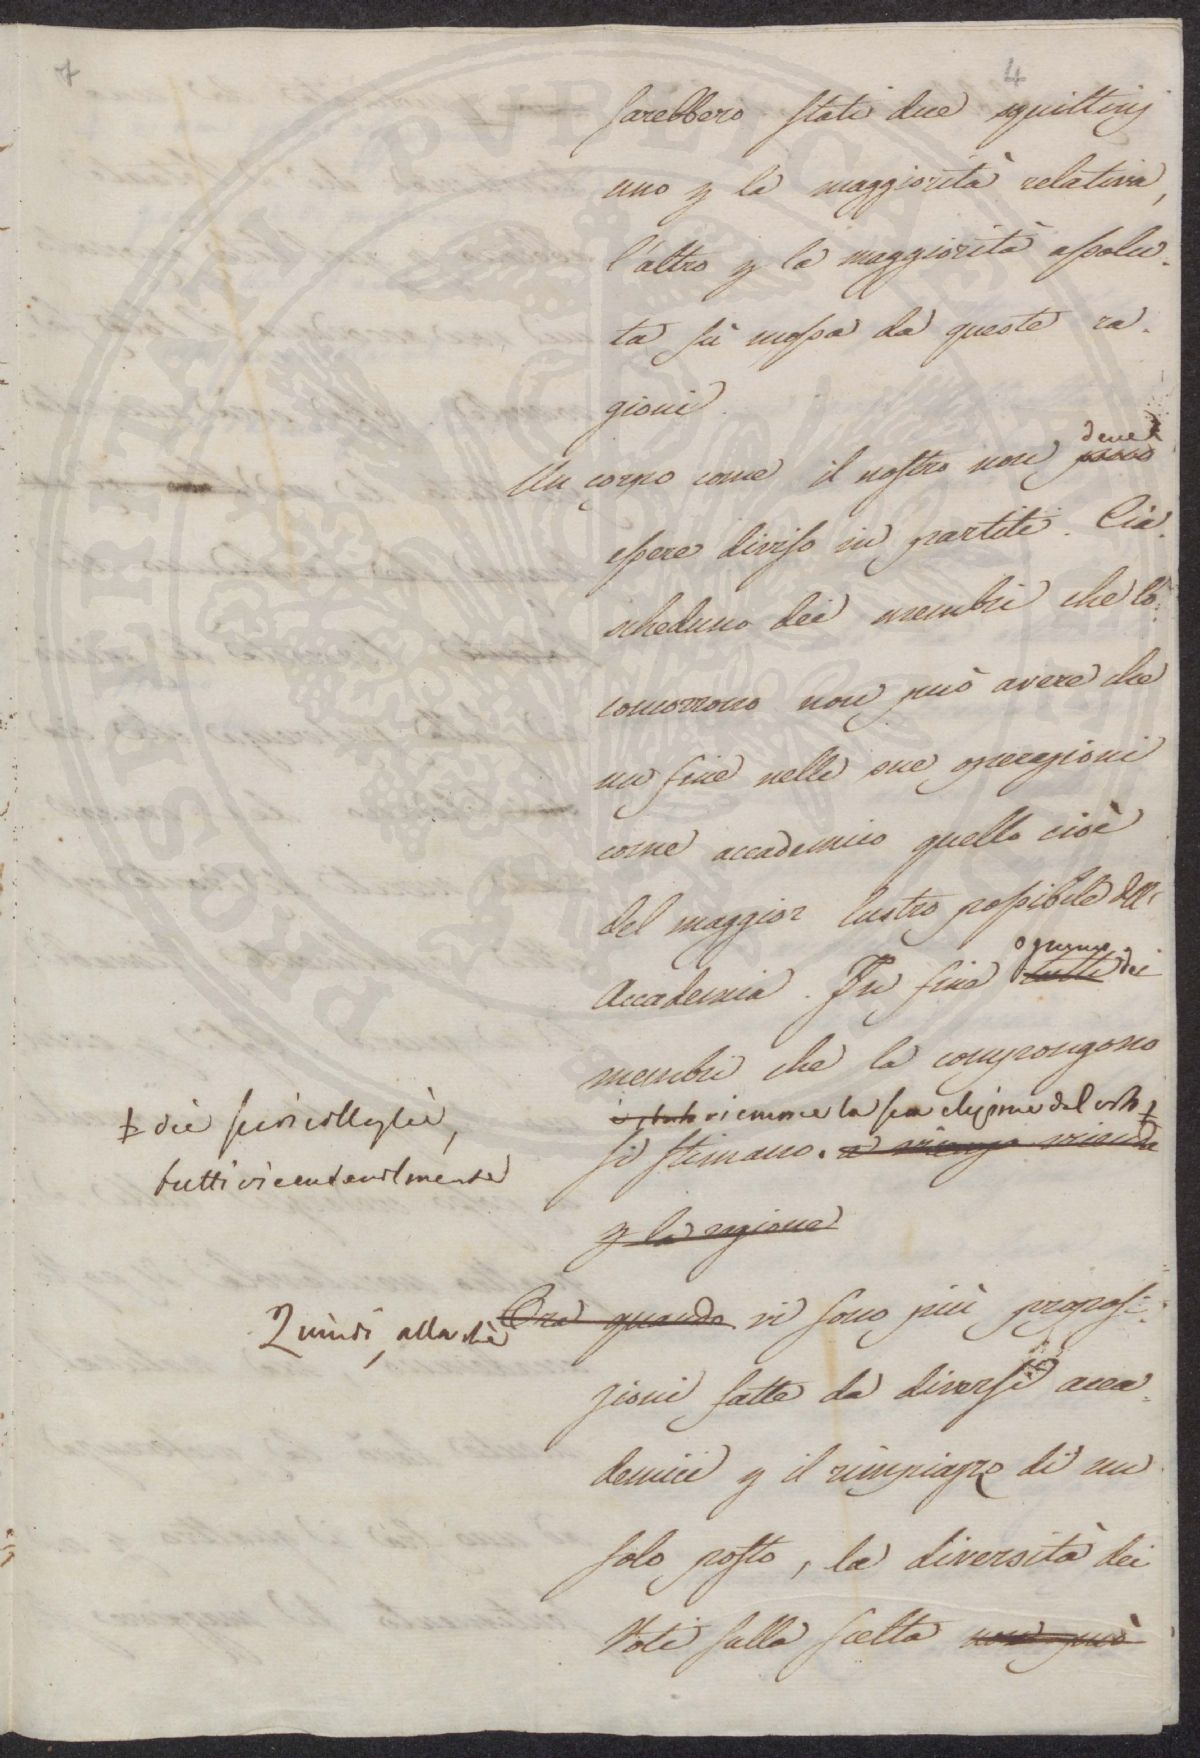 4
sarebbero stati due squittinj
uno p la maggiorità relativa,
l'altro p la maggiorità assolu-
ta fù mossa da queste ra-
gioni.
Un corpo come il nostro non deve
essere diviso in partiti. Cia-
scheduno dei membri che lo
concorrono non può avere che
un fine nelle sue operazioni
come accademico quello cioè
del maggior lustro possibile dell'
Accademia. In fine ognuno tutti dei
membri che la compongono
riconosce la sua elezione dal voto
dei suoi colleghi,
tutti vicendevolmente
si stimano. a vicenda
p la ragione
Quindi, allorchè
Ora quando vi sono più proposi-
zioni fatte da diversi acca-
demici p il rimpiazzo di un
solo posto, la diversità dei
Voti sulla scelta non può
PROSPERITATI PVBLICAE